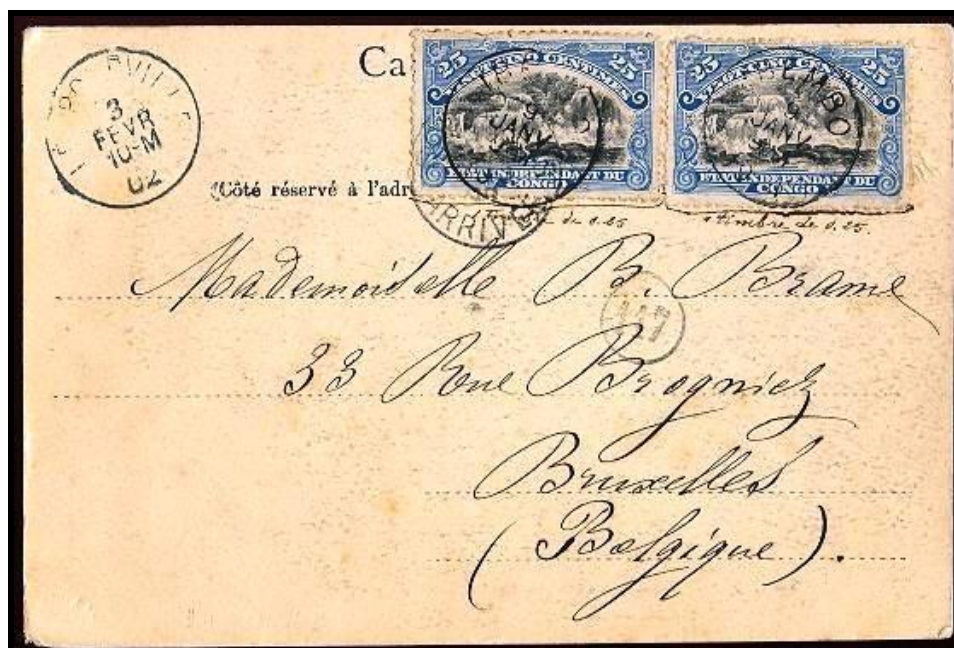 Ca
3
FEVR
10-M
02
25 VINGT CINQ CENTIMES 25
9
JANV
ETAT INDÉPENDANT DU
CONGO
25 VINGT CINQ CENTIMES 25
9
JANV
ETAT INDÉPENDANT DU
CONGO
(Côté réservé à l'adr
ARRIVÉE
de 0.25
timbre de 0.25.
Mademoiselle B. Brame
117
33 Rue Brogniez
Bruxelles
(Belgique).